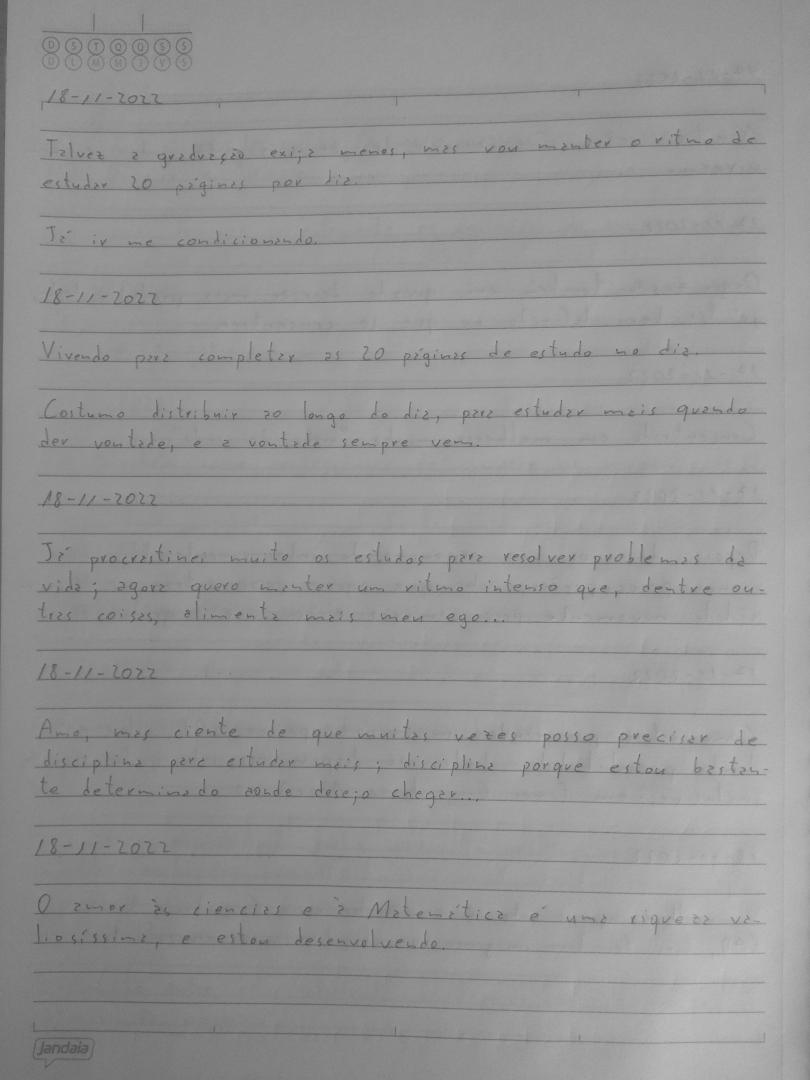 D S T Q Q S S
D L M M J V S
18-11-2022
Talvez a graduação exija menos, mas vou manter o ritmo de
estudar 20 páginas por dia.
Já ir me condicionando.
18-11-2022
Vivendo para completar as 20 páginas de estudo no dia.
Costumo distribuir ao longo do dia, para estudar mais quando
der vontade, e a vontade sempre vem.
18-11-2022
Já procrastinei muito os estudos para resolver problemas da
vida; agora quero manter um ritmo intenso que, dentre ou-
tras coisas, alimenta mais meu ego...
18-11-2022
Amo, mas ciente de que muitas vezes posso precisar de
disciplina para estudar mais; disciplina porque estou bastan-
te determinado aonde desejo chegar...
18-11-2022
O amor às ciencias e à Matemática é uma riqueza va-
liosíssima, e estou desenvolvendo.
jandaia